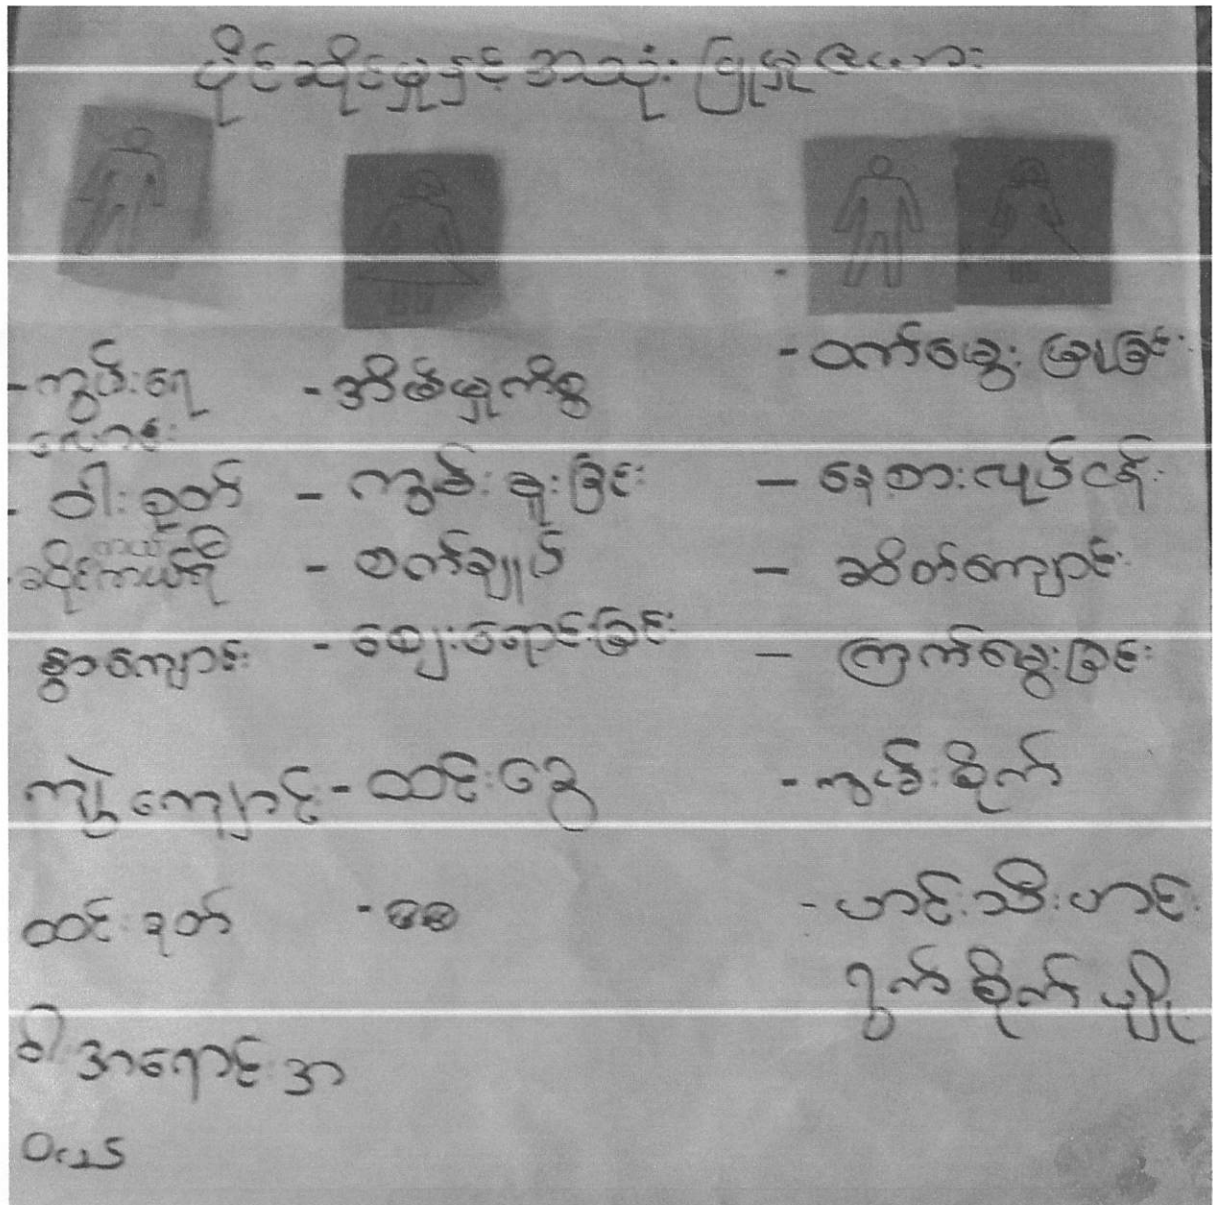 ပိုင်ဆိုင်မှုနှင့် အသုံးပြုမှုဇယား
-ကွမ်းရေ
လောင်း
- ဝါးခုတ်
စွာကျောင်း
ကျွဲကျောင်း
ထင်းခုတ်
ဝါးအရောင်းအ
ဝယ်
-အိမ်မှုကိစ္စ
- ကွမ်းခူးခြင်း
- စက်ချုပ်
- ဈေးရောင်းခြင်း
- ထင်းခွေ
- ဝက်မွေးမြူခြင်း
- နေ့စားလုပ်ငန်း
- ဆိတ်ကျောင်း
- ကြက်မွေးခြင်း
- ကွမ်းစိုက်
- ဟင်းသီးဟင်း
ရွက်စိုက်ပျိုး